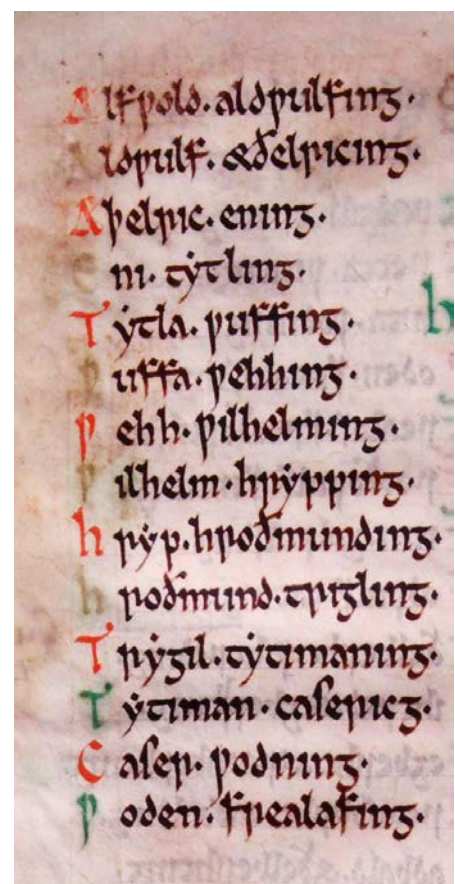 Alfƿold· aldƿulfing·
Aldƿulf· æðelricing·
Aþelric· ening·
ni· tytling·
Tytla· ƿuffing·
Ƿuffa· ƿehhing·
Ƿehh· ƿilhelming·
Ƿilhelm· hrypping·
hryp· hroðmunding·
hroðmund· trigling·
Trygil· tytimaning·
Tytiman· casericg·
Caser· ƿodning·
Ƿoden· frealafing·